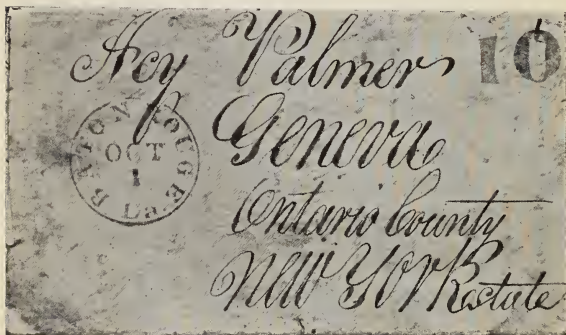 Hey Palmer
10
BATON ROUGE
OCT
1
La.
Geneva
Ontario County
New York State